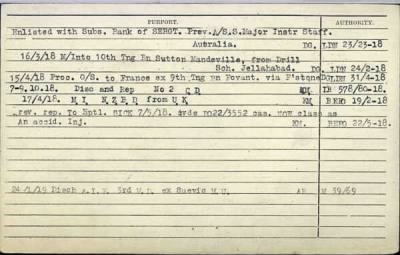 PURPORT. AUTHORITY.
Enlisted with Subs. Rank of SERGT. Prev. A/S.S.Major Instr Staff.
Australia. DG. LDN 23/23-18
16/3/18 M/Into 10th Tng Bn Sutton Mandeville, from Drill
Sch. Jellahabad. DG. LDN 24/2-18
15/4/18 Proc. O/S. to France ex 9th Tng Bn Fovant. via F'stone DG LDN 31/4-18
7-9.10.18. Disc and Rep No 2 CD KM DB 578/80-18.
17/4/18. M I from U K KM. 19/2-18
rev. rep. To Hptl. SICK 7/5/18. 22/3552 cas. NOW class as
An accid. Inj. KM. 22/5-18.
24/1/19 Disch A.I.F. 3rd M.D. ex Suevic AF M 39/69